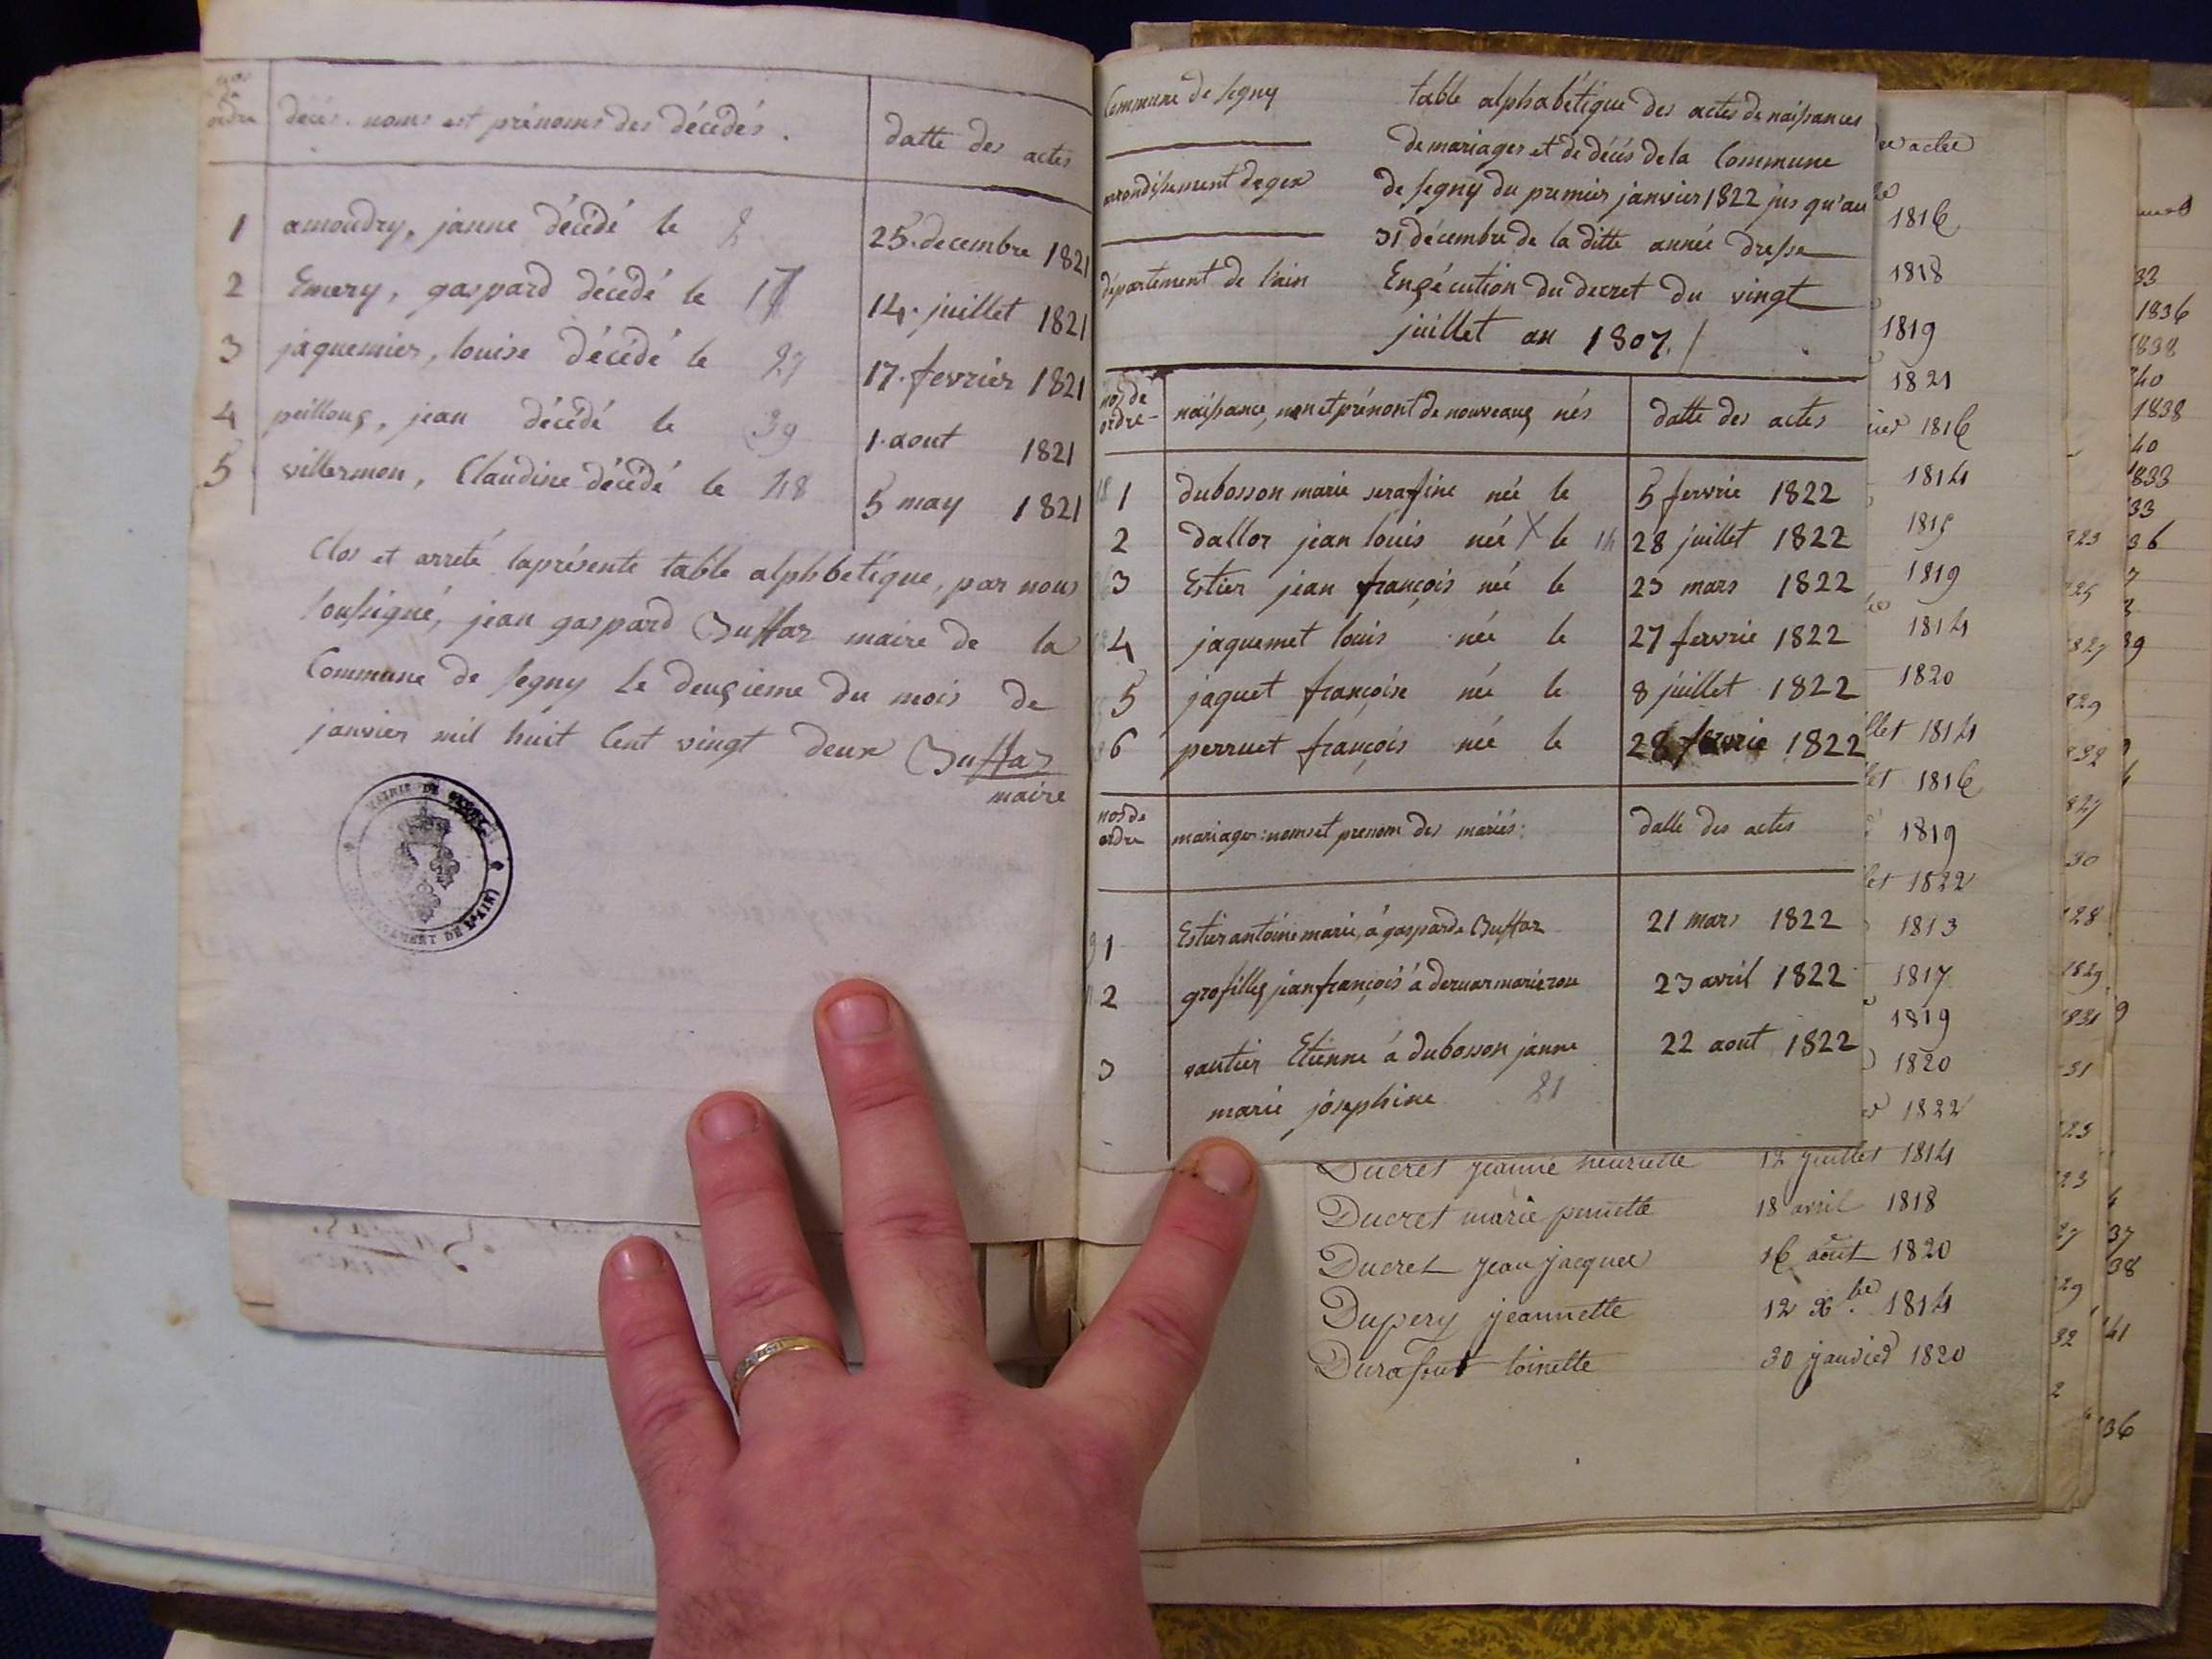 nos
ordre
décès. noms est prénoms des décédés.
datte des actes
1 amoudry, janne décédé le 2 25. decembre 1821
2 Emery, gaspard décédé le 17 14. juillet 1821
3 jaquemier, louise décédé le 27 17. fevrier 1821
4 peilloux, jean décédé le 39 1. aout 1821
5 villermon, Claudine décédé le 48 5 may 1821
Clos et arreté laprésente table alphbetique, par nous
soussigné, jean gaspard Buffaz maire de la
Commune de Segny le deuxieme du mois de
janvier mil huit Cent vingt deux Buffaz
maire
MAIRIE DE
DEPARTEMENT DE L'AIN
Commune de Segny
arrondissement de gex
département de l'ain
table alphabétique des actes de naissances
de mariages et de décés de la Commune
de Segny du premier janvier 1822 jus qu'au
31 décembre de la ditte année dresse
Exécution du decret du vingt
juillet an 1807.
nos de
ordre
naissance, non et prénont de nouveaux nés
datte des actes
1 dubosson marie serafine née le 5 fervrie 1822
2 dallor jean louis née X le 14 28 juillet 1822
3 Estier jean françois née le 23 mars 1822
4 jaquemet louis née le 27 fervrie 1822
5 jaquet françoise née le 8 juillet 1822
6 perruet françois née le 28 fervrie 1822
nos de
ordre
mariages: noms et prenom des mariés:
datte des actes
1 Estier antoine marie, à gasparde Buffaz 21 mars 1822
2 grofillex jean françois à 23 avril 1822
3 gautier Etienne à dubosson janne 22 aout 1822
marie josephine 21
Ducret jeanne henriette 12 juillet 1814
Ducret marie pernette 18 avril 1818
Ducret jean jacques 16 aout 1820
Dupery jeannette 12 Xbre 1814
Durafour toinette 30 janvier 1820
1816
1818
1819
1821
1816
1814
1815
1819
1814
1820
1814
1816
1819
1822
1813
1817
1819
1820
1822
33
1836
1838
40
1838
40
1833
33
36
39
37
38
41
36